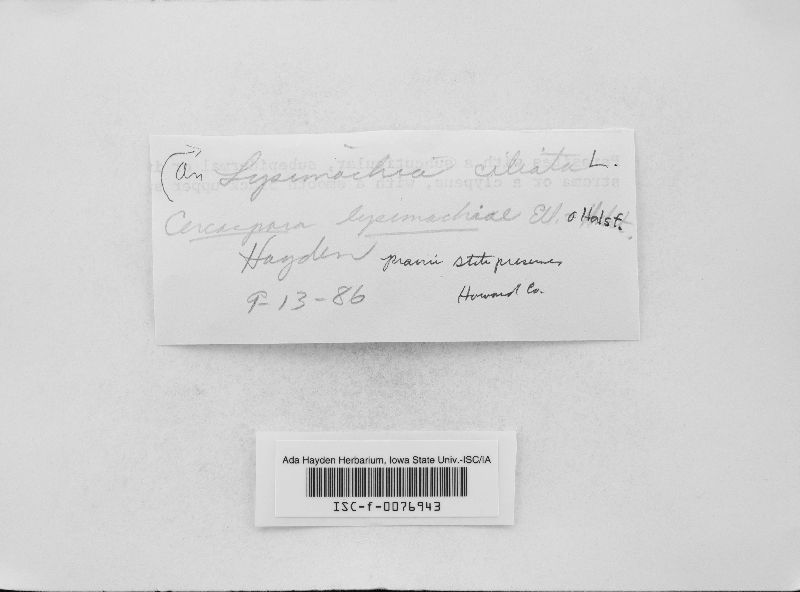 (on Lysimachia ciliata L.
Cercospora lysimachiae Ell. & Halst.
Hayden prairie state preserve,
9-13-86 Howard Co.
Ada Hayden Herbarium, Iowa State Univ.-ISC/IA
ISC-f-0076943